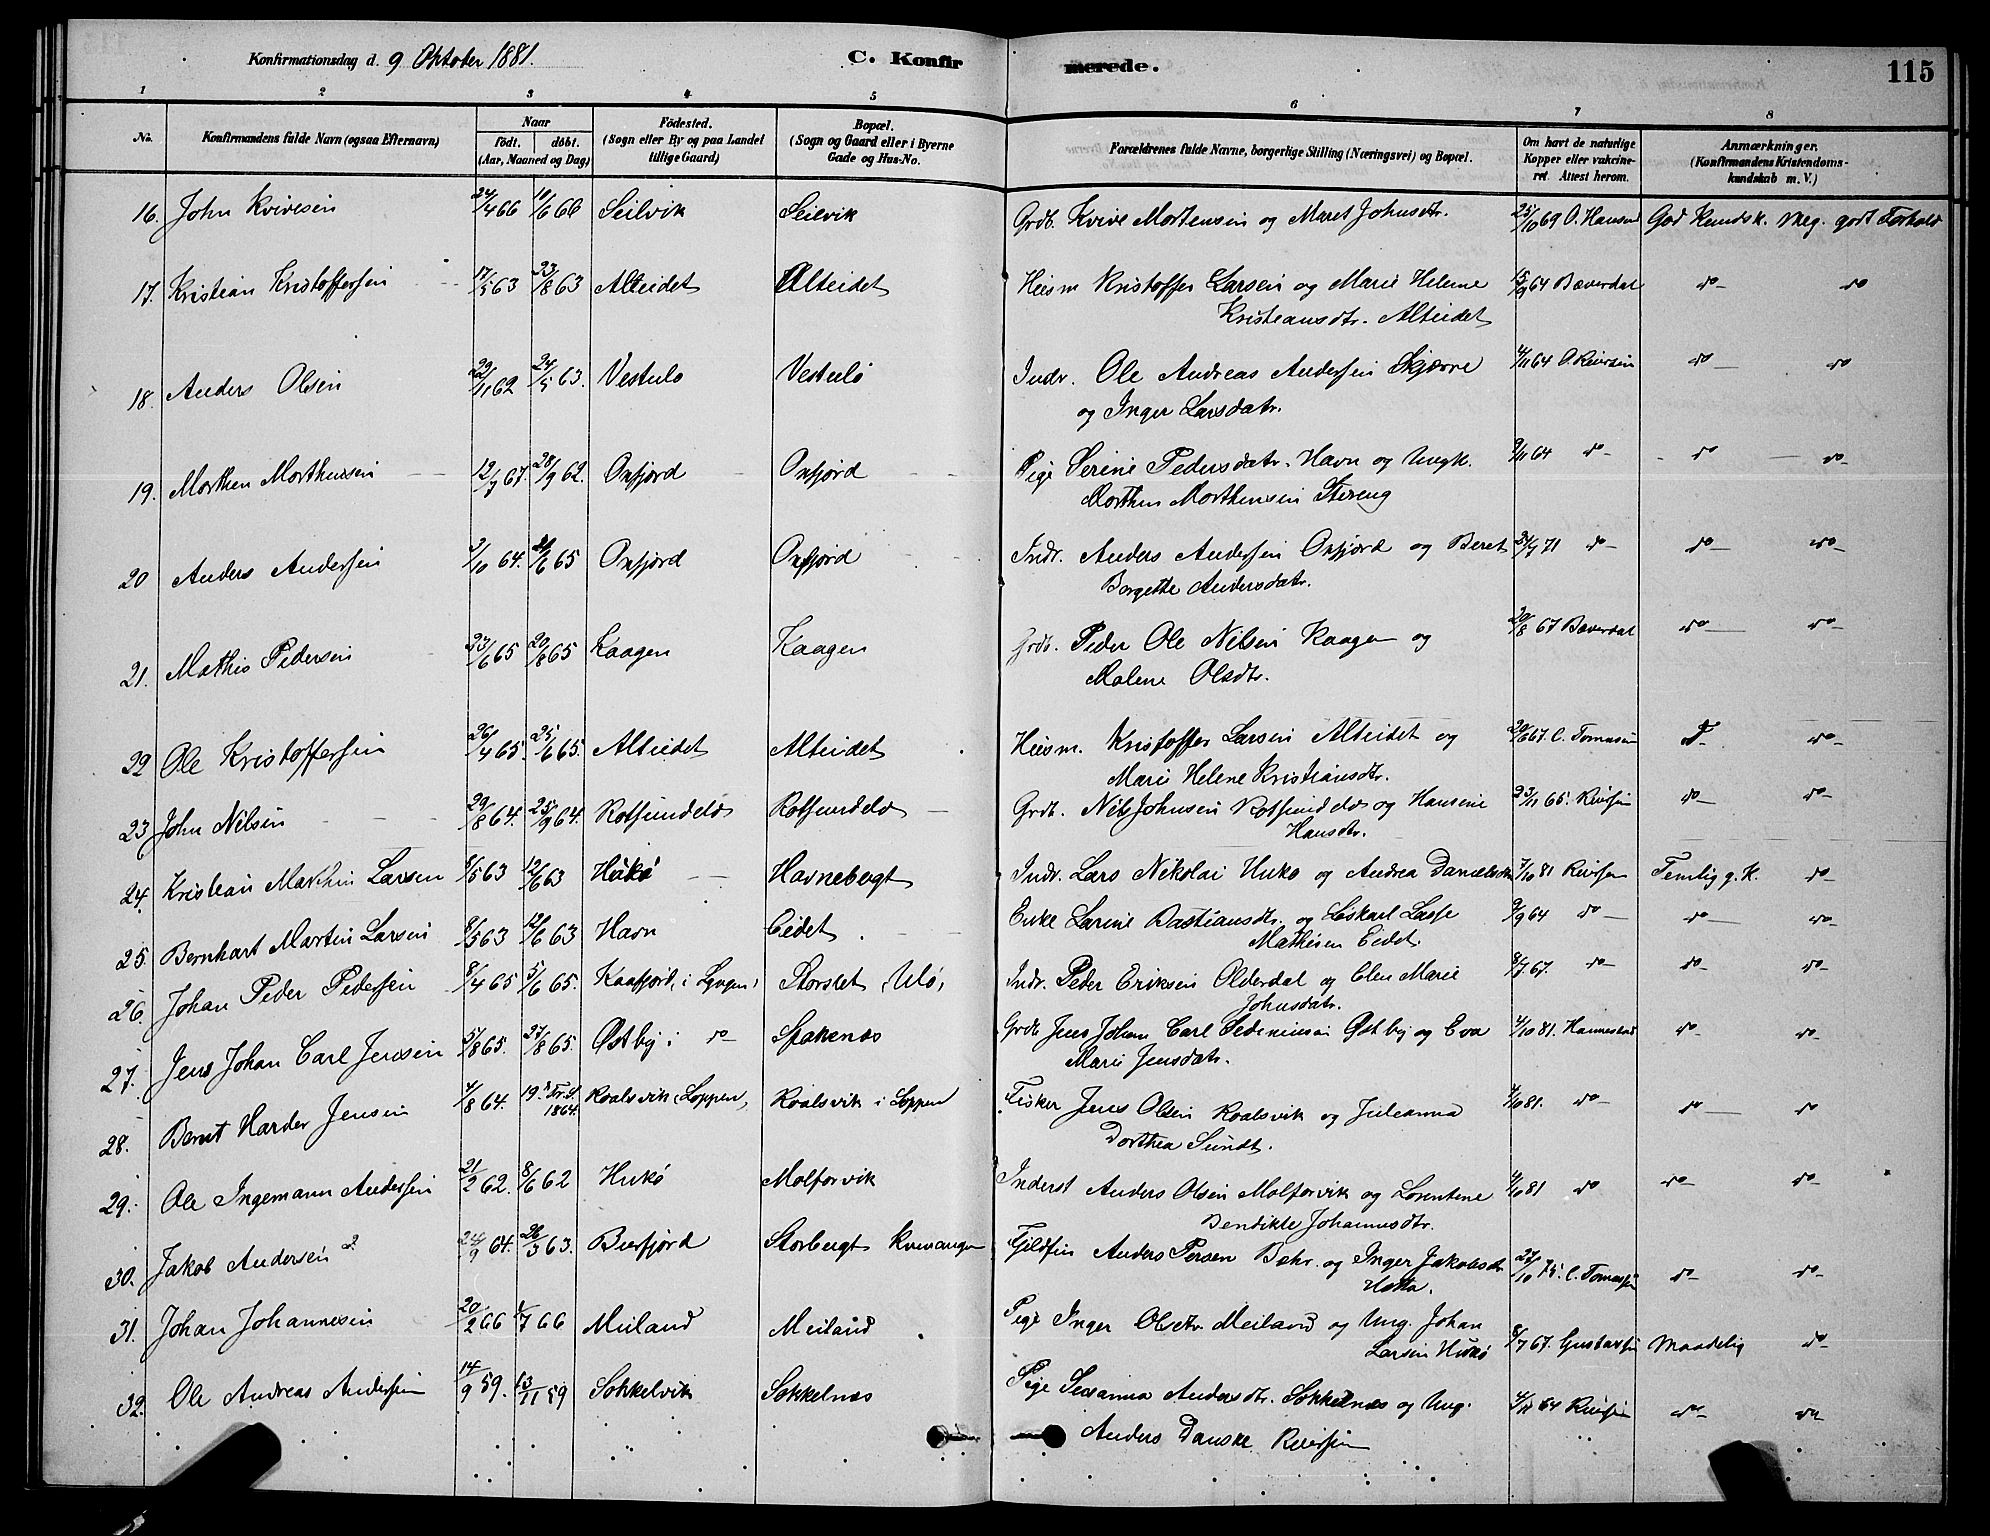 Konfirmationsdag d. 9 Oktober 1881. C. Konfirmerede. 115
1 2 3 4 5 6 7 8
No. Konfirmandens fulde Navn (ogsaa Efternavn) Naar født. døbt. (Aar, Maaned og Dag) Fødested. (Sogn eller By og paa Landet tillige Gaard) Bopæl. (Sogn og Gaard eller i Byerne Gade og Hus-No. Forældrenes fulde Navne, borgerlige Stilling (Næringsvei) og Bopæl. Om havt de naturlige Kopper eller vakcineret. Attest herom. Anmærkninger. (Konfirmandens Kristendomskundskab m. V.)
16. John Kvivesen 24/4 66 10/6 66 Seilvik Seilvik Grdb. Kvive Mortensen og Maret Johnsdtr. 25/10 69 O. Hansen God Kundsk. Meg. godt Forhold
17. Kristian Kristoffersen 17/5 63 23/8 63 Alteidet Alteidet Huusm Kristoffer Larsen og Marie Helene 15/9 64 Bæverdal do do
Kristiansdtr. Alteidet
18. Anders Olsen 22/11 62 24/5 63. Vestulø Vestulø Indr. Ole Andreas Andersen Skjærve 4/11 64 O. Reiersen do do
og Inger Larsdatr.
19. Morthen Morthensen 12/7 67. 28/9 62. Oxfjord Oxfjord Pige Serine Pedersdatr. Havn og Ungk. 9/11 64 do do do
Morthen Morthensen Stereng
20 Anders Andersen 3/10 64. 21/6 65 Oxfjord Oxfjord Indr. Anders Andersen Oxfjord og Beret 24/7 71 do do do
Borgette Andersdatr.
21. Mathis Pedersen 23/6 65 20/8 65 Kaagen Kaagen Grdb. Peder Ole Nilsen Kaagen og 20/8 67 Bæverdal do do
Malene Olsdtr.
22 Ole Kristoffersen 26/4 65. 25/6 65. Alteidet Alteidet Huusm. Kristoffer Larsen Alteidet og 20/6 67. C. Tomassen do do
Marie Helene Kristiansdtr.
23 John Nilsen 29/8 64. 25/9 64. Rotsundelv Rotsundelv Grdb. Nils Johnsen Rotsundelv og Hansine 23/11 65. Reiersen do do
Hansdtr.
24. Kristian Marthin Larsen 8/5 63 12/6 63 Hukø Havnebugt Indr. Lars Nikolai Hukø og Andrea Danielsdtr 7/10 81 Reiersen Temlig g. K. do
25. Bernhart Martin Larsen 9/5 63 12/6 63 Havn Eidet Enke Larine Bastiansdtr. og Lasse 9/9 64 do do do
Mathisen Eidet.
26. Johan Peder Pedersen 8/4 65 5/6 65. Kaafjord, i Lyngen, Storslet, Ulø, Indr. Peder Eriksen Olderdal og Elen Marie 9/7 67. do do do
Johnsdatr.
27. Jens Johan Carl Jensen 5/8 65. 27/8 65. Østby i do Spakenæs Grdb Jens Johan Carl Pedersen Østby og Eva 4/10 81. Hannestad do do
Marie Jensdatr.
28. Bernt Harder Jensen 4/8 64. 19. S. Tr. 1864 Roalsvik, Loppen, Roalsvik i Loppen Fisker Jens Olsen Roalsvik og Juleanna 4/10 81. do do do
Dorthea Sundt.
29. Ole Ingemann Andersen 21/2 62. 8/6 62 Hukø Molforvik Inderst Anders Olsen Molforvik og Lorentine 4/10 81 do do do
Bendikte Johannesdtr.
30. Jakob Andersen 2. 24/9 64. 26/3 63. Burfjord Storbugt Kvenangen Fjeldfin Anders Persen Bæhr. og Inger Jakobsdtr 27/10 75. C. Tomassen do do
Utska.
31. Johan Johannesen 20/2 66 1/7 66 Meiland Meiland Pige Inger Olsdtr. Meiland og Ung. Johan 8/7 67. Gustavsen Maadelig do
Larsen Hukø
32. Ole Andreas Andersen 14/9 59. 13/11 59 Sokkelvik Sokkelnæs Pige Susanna Andersdtr. Sokkelnæs og Ung. 4/11 64 Reiersen do do
Anders Danske Reiersen